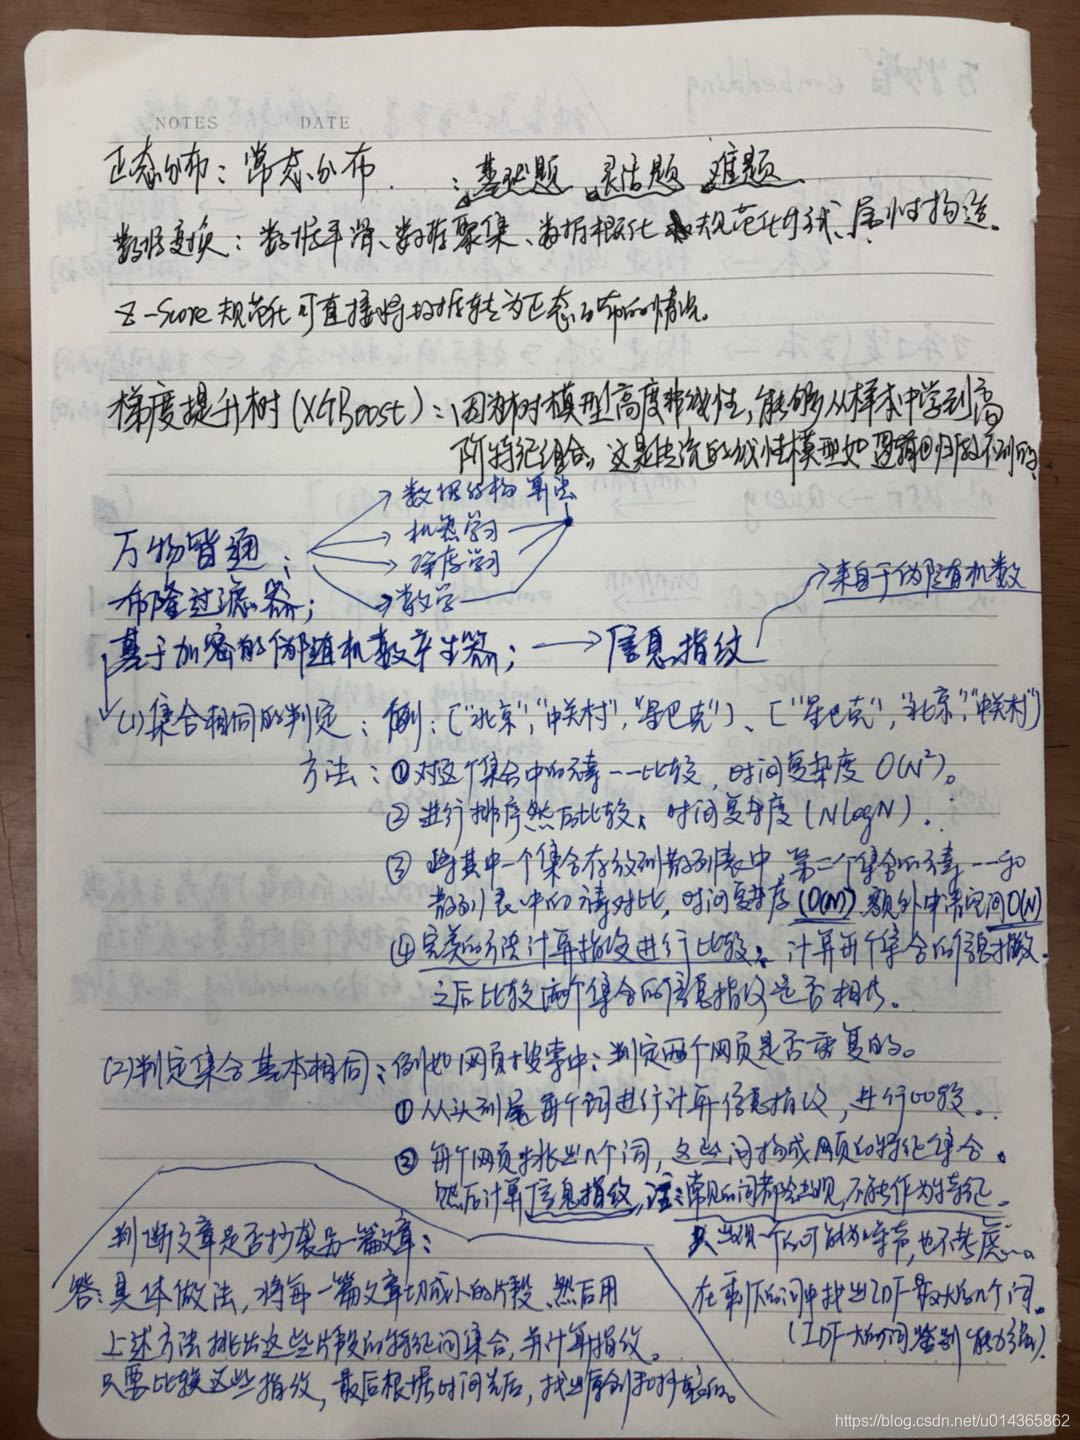 NOTES DATE
正态分布：常态分布. ：基础题 灵活题 难题
数据变换：数据平滑、数据聚集、数据概化 规范化方式、属性构造。
Z-Score规范化可直接将数据转为正态分布的情况。
梯度提升树(XGBoost)：因为树模型高度非线性,能够从样本中学到高
阶特征组合。这是传统的线性模型如逻辑回归做不到的
数据结构 算法
万物皆通：
机器学习
深度学习
数学
来自于伪随机数
布隆过滤器；
基于加密的伪随机数产生器； → 信息指纹
(1)集合相同的判定：例：["北京","中关村","星巴克"]、["星巴克","北京","中关村"]
方法：①对这个集合中的元素一一比较，时间复杂度 O(N²)。
②进行排序然后比较、时间复杂度(NlogN).
③将其中一个集合存放到散列表中,第二个集合的元素一一和
散列表中的元素对比，时间复杂度(O(N)) 额外申请空间O(N)
④完美的方法计算指纹进行比较。计算每个集合的信息指纹.
之后比较两个集合的信息指纹是否相等。
(2)判定集合基本相同：例如网页搜索中：判定两个网页是否重复的。
①从头到尾每个词进行计算信息指纹，进行比较.
②每个网页中挑出n个词，这些词构成网页的特征集合.
然后计算信息指纹,注：常见的词都会出现,不能作为特征.
只出现一个的可能为噪声,也不考虑...
在剩下的词中找出IDF最大的n个词.
(IDF大的词鉴别能力强).
判断文章是否抄袭另一篇文章：
答:具体做法,将每一篇文章切成小的片段,然后用
上述方法挑出这些片段的特征词集合,并计算指纹.
只要比较这些指纹，最后根据时间先后，找出原创和抄袭的。
https://blog.csdn.net/u014365862